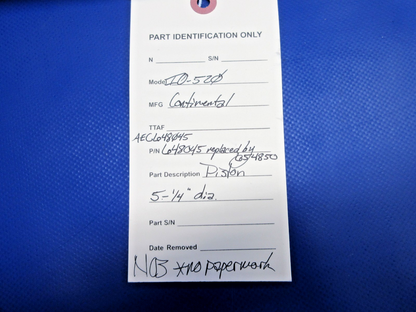 PART IDENTIFICATION ONLY
N S/N
Model IO-520
MFG Continental
TTAF
AEC648045
P/N 648045 replaced by
654850
Part Description Piston
5-1/4" dia.
Part S/N
Date Removed
NOS *no paperwork